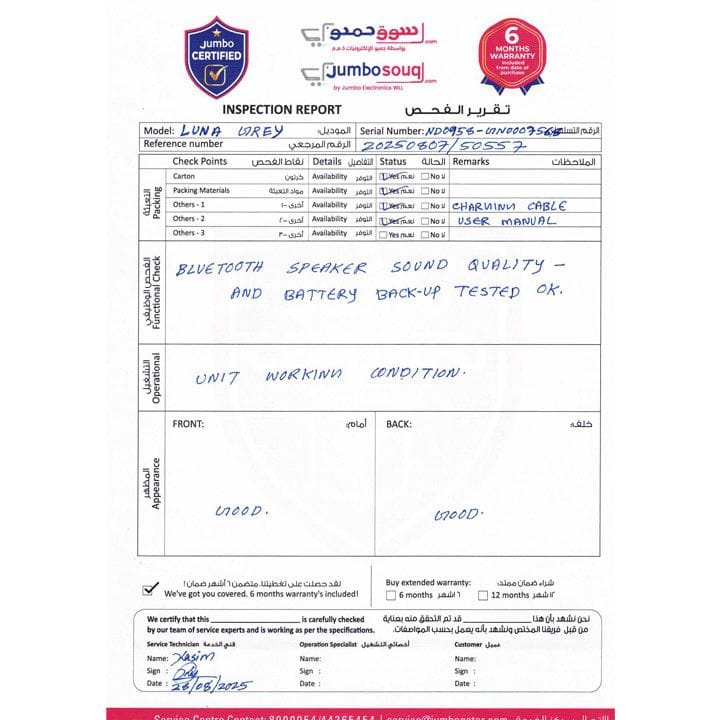 Jumbo
CERTIFIED
سوق جمبو
.com
بواسطة جمبو للإلكترونيات ذ.م.م
jumbosouq
.com
by Jumbo Electronics WLL
6
MONTHS
WARRANTY
included
from date of
purchase
INSPECTION REPORT تقرير الفحص
Model: LUNA GREY الموديل: Serial Number: الرقم التسلسلي
Reference number الرقم المرجعي 20250807/50557
Check Points نقاط الفحص Details التفاصيل Status الحالة Remarks الملاحظات
التعبئة Packing
Carton كرتون Availability التوفر Yes نعم No لا
Packing Materials مواد التعبئة Availability التوفر Yes نعم No لا
Others - 1 أخرى -١ Availability التوفر Yes نعم No لا CHARGING CABLE
Others - 2 أخرى -٢ Availability التوفر Yes نعم No لا USER MANUAL
Others - 3 أخرى -٣ Availability التوفر Yes نعم No لا
الفحص الوظيفي Functional Check
BLUETOOTH SPEAKER SOUND QUALITY -
AND BATTERY BACK-UP TESTED OK.
التشغيل Operational
UNIT WORKING CONDITION.
المظهر Appearance
FRONT: أمام: BACK: خلف:
GOOD. GOOD.
لقد حصلت على تغطيتنا. متضمن ٦ أشهر ضمان!
We've got you covered. 6 months warranty's included!
Buy extended warranty: شراء ضمان ممتد:
6 months ٦ أشهر 12 months ١٢ شهر
We certify that this ______ is carefully checked
by our team of service experts and is working as per the specifications.
نحن نشهد بأن هذا ______ قد تم التحقق منه بعناية
من قبل فريقنا المختص ونشهد بأنه يعمل بحسب المواصفات.
Service Technician فني الخدمة Operation Specialist أخصائي التشغيل Customer عميل
Name: Kasim Name: Name:
Sign : Sign : Sign :
Date : 28/08/2025 Date : Date :